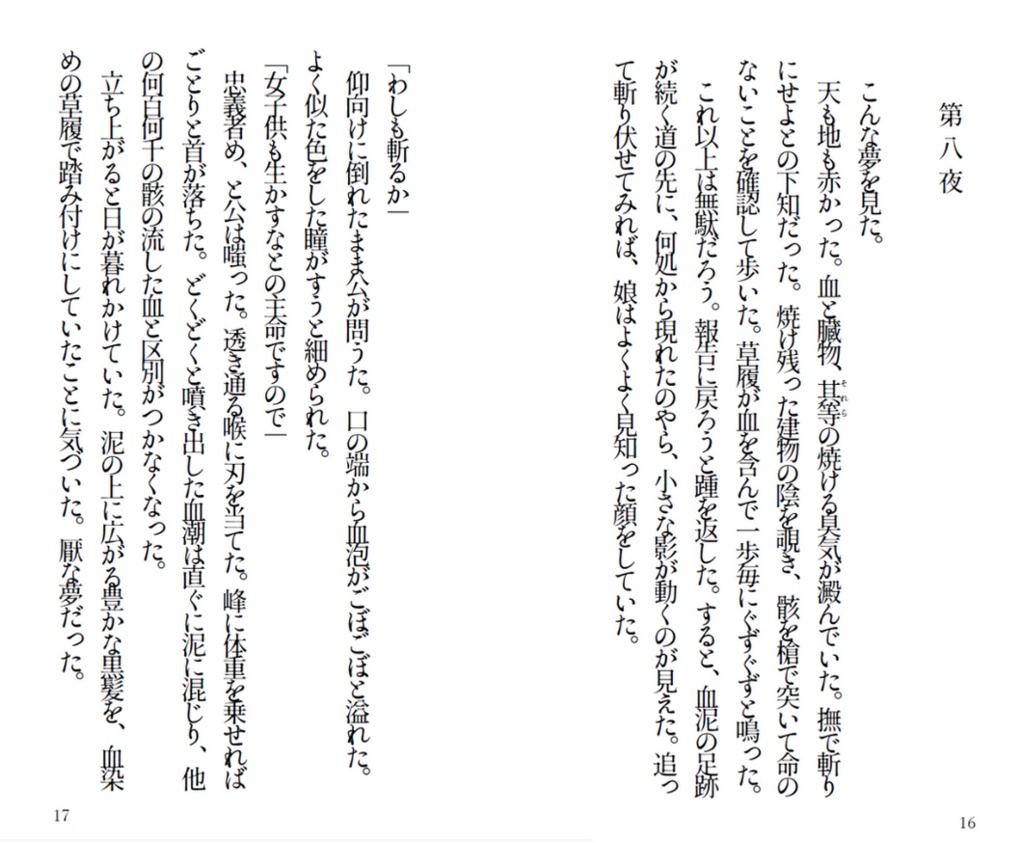 第八夜
こんな夢を見た。
天も地も赤かった。血と臓物、其等の焼ける臭気が澱んでいた。撫で斬り
にせよとの下知だった。焼け残った建物の陰を覗き、骸を槍で突いて命の
ないことを確認して歩いた。草履が血を含んで一歩毎にぐずぐずと鳴った。
これ以上は無駄だろう。報告に戻ろうと踵を返した。すると、血泥の足跡
が続く道の先に、何処から現れたのやら、小さな影が動くのが見えた。追っ
て斬り伏せてみれば、娘はよくよく見知った顔をしていた。
それら
16
「わしも斬るか」
仰向けに倒れたまま公が問うた。口の端から血泡がごぼごぼと溢れた。
よく似た色をした瞳がすうと細められた。
「女子供も生かすなとの主命ですので」
忠義者め、と公は嗤った。透き通る喉に刃を当てた。峰に体重を乗せれば
ごとりと首が落ちた。どくどくと噴き出した血潮は直ぐに泥に混じり、他
の何百何千の骸の流した血と区別がつかなくなった。
立ち上がると日が暮れかけていた。泥の上に広がる豊かな黒髪を、血染
めの草履で踏み付けにしていたことに気づいた。厭な夢だった。
17